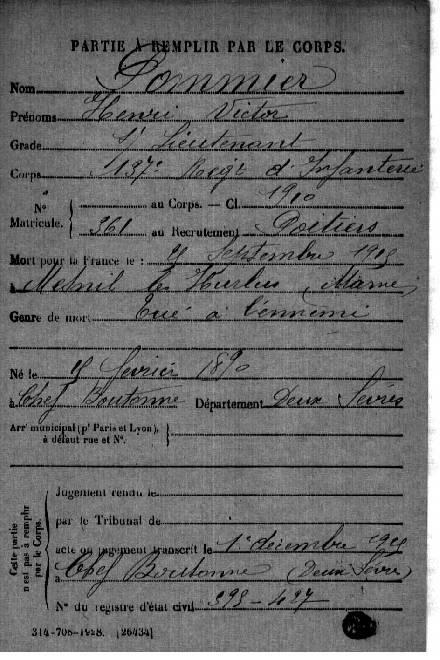 PARTIE À REMPLIR PAR LE CORPS.
Nom Pommier
Prénoms Henri Victor
Grade S/ Lieutenant
Corps 137e Régt d'Infanterie
N° Matricule. { au Corps. — Cl. 1910
361 au Recrutement Poitiers
Mort pour la France le : septembre 1915
à Mesnil les Hurlus (Marne)
Genre de mort Tué à l'ennemi
Né le février 1890
à Chef Boutonne Département Deux Sèvres
Arrt municipal (pr Paris et Lyon),
à défaut rue et N°.
Cette partie n'est pas à remplir par le Corps.
Jugement rendu le
par le Tribunal de
acte ou jugement transcrit le 1er décembre 1915
à Chef Boutonne (Deux Sèvre)
N° du registre d'état civil 395-427
314-708-1928. [26434]